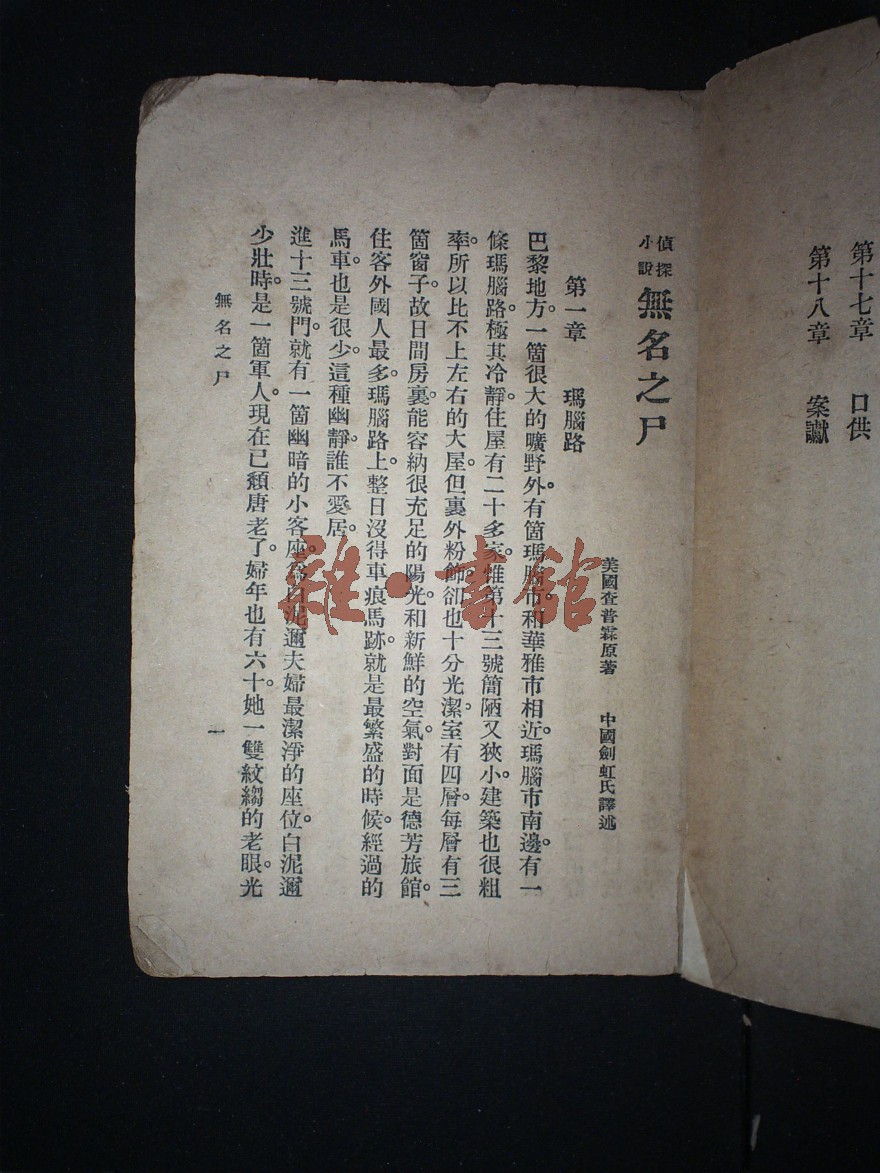 第十七章 口供
第十八章 案讞
偵探小說 無名之尸
美國查普霖原著 中國劍虹氏譯述
第一章 瑪腦路
巴黎地方。一箇很大的曠野外。有箇瑪腦市。和華雅市相近。瑪腦市南邊。有一
條瑪腦路。極其冷靜。住屋有二十多家。惟第十三號簡陋又狹小。建築也很粗
率。所以比不上左右的大屋。但裏外粉飾。卻也十分光潔。室有四層。每層有三
箇窗子。故日間房裏。能容納很充足的陽光。和新鮮的空氣。對面是德芳旅館。
住客外國人最多。瑪腦路上。整日沒得車痕馬跡。就是最繁盛的時候。經過的
馬車。也是很少。這種幽靜。誰不愛居。
進十三號門。就有一箇幽暗的小客座。為白泥邇夫婦最潔淨的座位。白泥邇
少壯時。是一箇軍人。現在已頹唐老了。婦年也有六十。她一雙紋縐的老眼。光
無名之尸
一
雜·書館